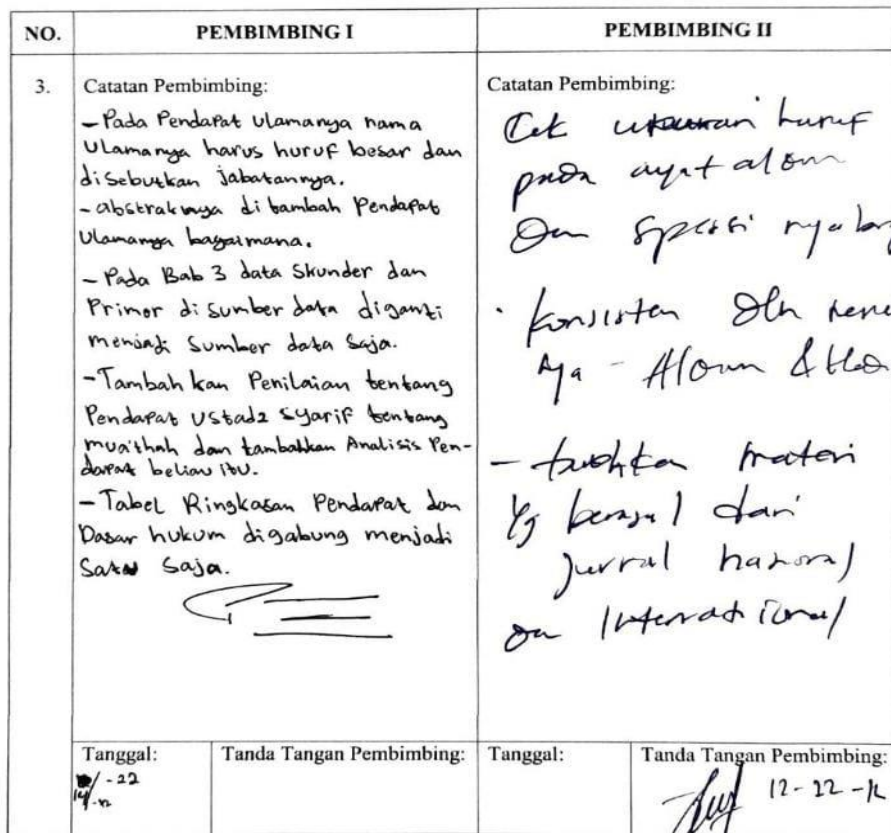 NO.
PEMBIMBING I
PEMBIMBING II
3.
Catatan Pembimbing:
- Pada Pendapat ulamanya nama
Ulamanya harus huruf besar dan
disebutkan jabatannya.
- abstraknya di tambah Pendapat
Ulamanya bagaimana.
- Pada Bab 3 data Skunder dan
Primer di sumber data diganti
menjadi sumber data saja.
- Tambah kan Penilaian tentang
Pendapat Ustadz Syarif tentang
mua'thah dan tambahkan Analisis Pen-
dapat beliau itu.
- Tabel Ringkasan Pendapat dan
Dasar hukum digabung menjadi
Satu Saja.
Catatan Pembimbing:
Cek huruf
pada ayat
Dan spasi
konsisten
-
- materi
yg berasal dari
jurnal nasional
dan Internasional
Tanggal:
-22
Tanda Tangan Pembimbing:
Tanggal:
Tanda Tangan Pembimbing:
12-22